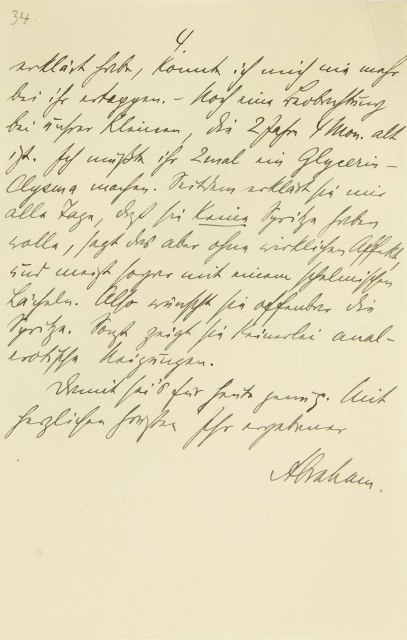 34.
4.
erklärt habe, konnte ich mich nie mehr
bei ihr ertappen. – Noch eine Beobachtung
bei unsrer Kleinen, die 2 Jahre 4 Mon. alt
ist. Ich mußte ihr 2mal ein Glycerin-
Clysma machen. Seitdem erklärt sie mir
alle Tage, daß sie keine Spritze haben
wolle, sagt das aber ohne wirklichen Affekt
und meist sogar mit einem schelmischen
Lächeln. Also wünscht sie offenbar die
Spritze. Sonst zeigt sie keinerlei anal-
erotische Neigungen.
Damit sei's für heute genug. Mit
herzlichen Grüßen Ihr ergebener
Abraham.